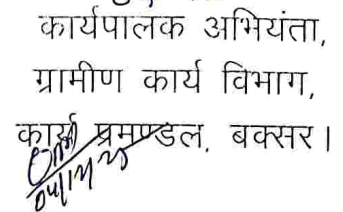 कार्यपालक अभियंता,
ग्रामीण कार्य विभाग,
कार्य प्रमण्डल, बक्सर।